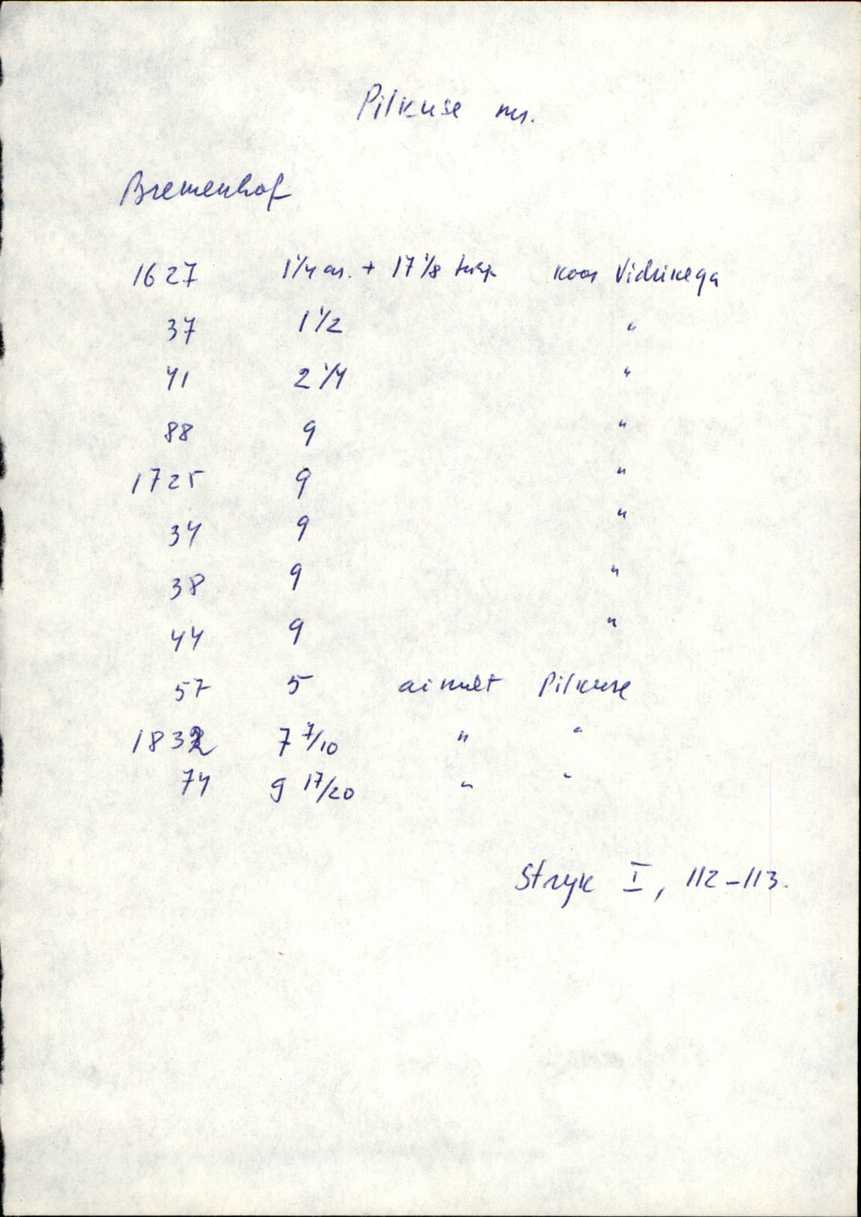 Pilkuse ms.
Bremenhof
1627 1 1/4 as. + 17 1/8 koos Vidrikega
37 1 1/2 "
41 2 1/4 "
88 9 "
1725 9 "
34 9 "
38 9 "
44 9 "
57 5 ainult Pilkuse
1832 7 7/10 " "
74 9 17/20 " "
Stryk I, 112-113.